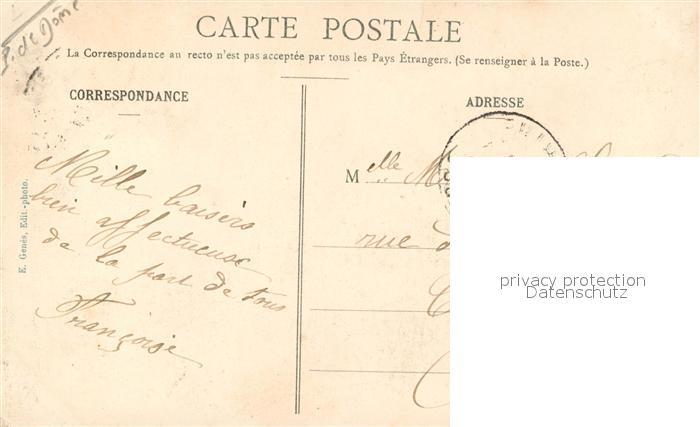 P. de Dôme
CARTE POSTALE
La Correspondance au recto n'est pas acceptée par tous les Pays Étrangers. (Se renseigner à la Poste.)
CORRESPONDANCE
ADRESSE
Mille baisers
bien affectueuse
de la part de tous
Françoise
E. Genès, Edit.-photo.
Melle M
rue d
privacy protection
Datenschutz